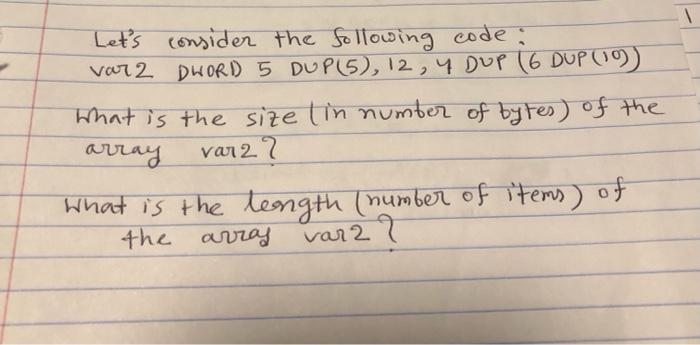 Let's consider the following code :
var2 DWORD 5 DUP(5), 12, 4 DUP (6 DUP(10))
What is the size (in number of bytes) of the
array var2 ?
What is the length (number of items) of
the array var2 ?